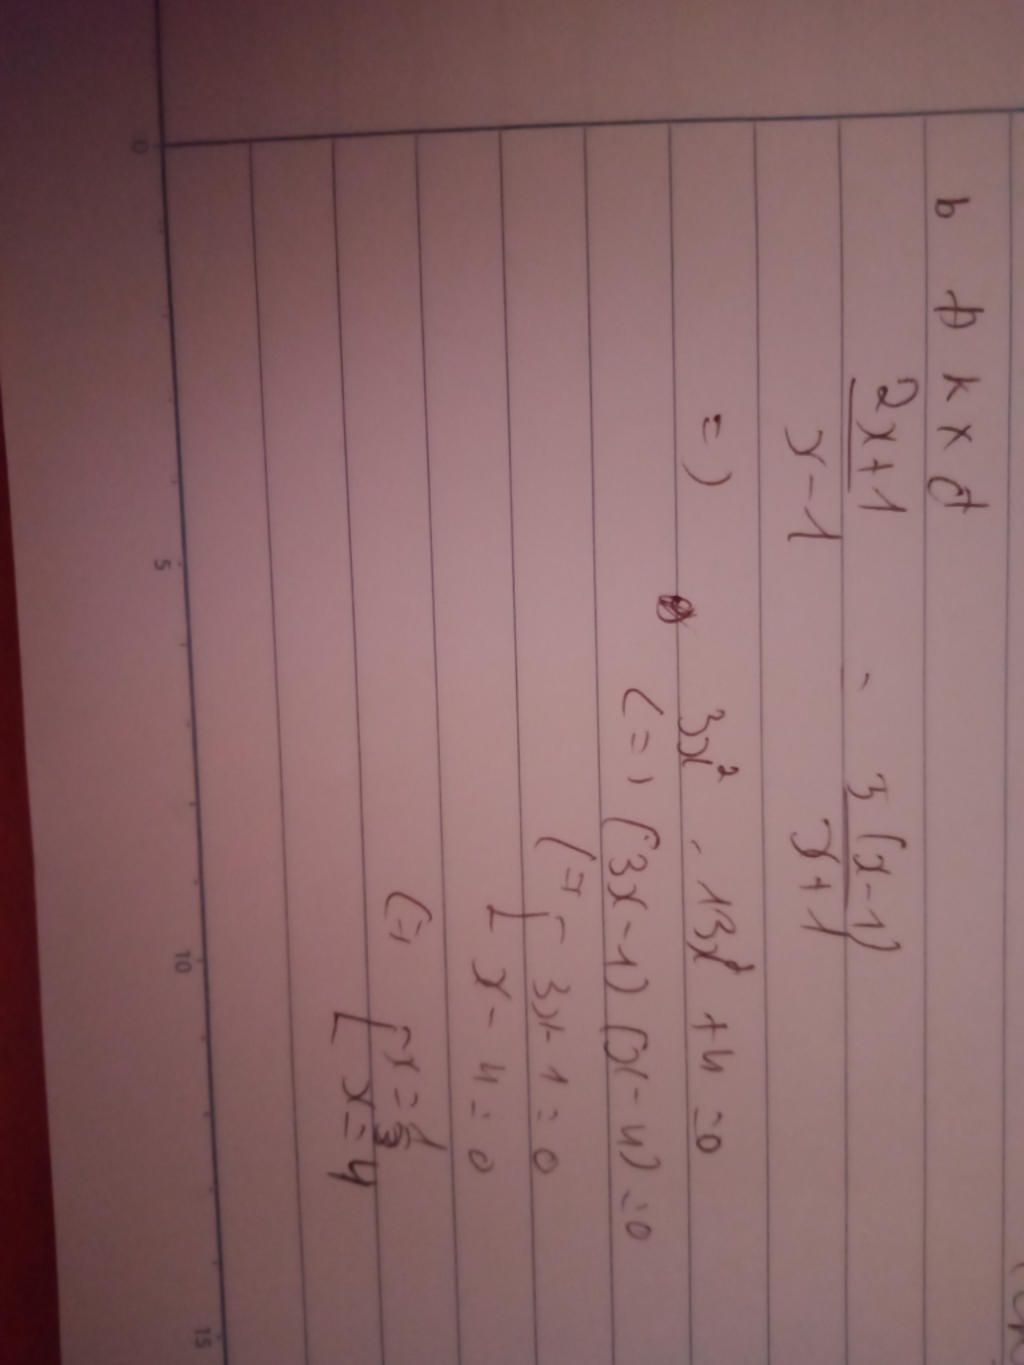 b đkxđ
2x+1 - 3(x-1)
x-1 x+1
=) 3x² - 13x + 4 = 0
(=) (3x-1)(x-4) = 0
(=) [ 3x-1=0
x-4=0
(=) [ x=1/3
x=4
0 5 10 15